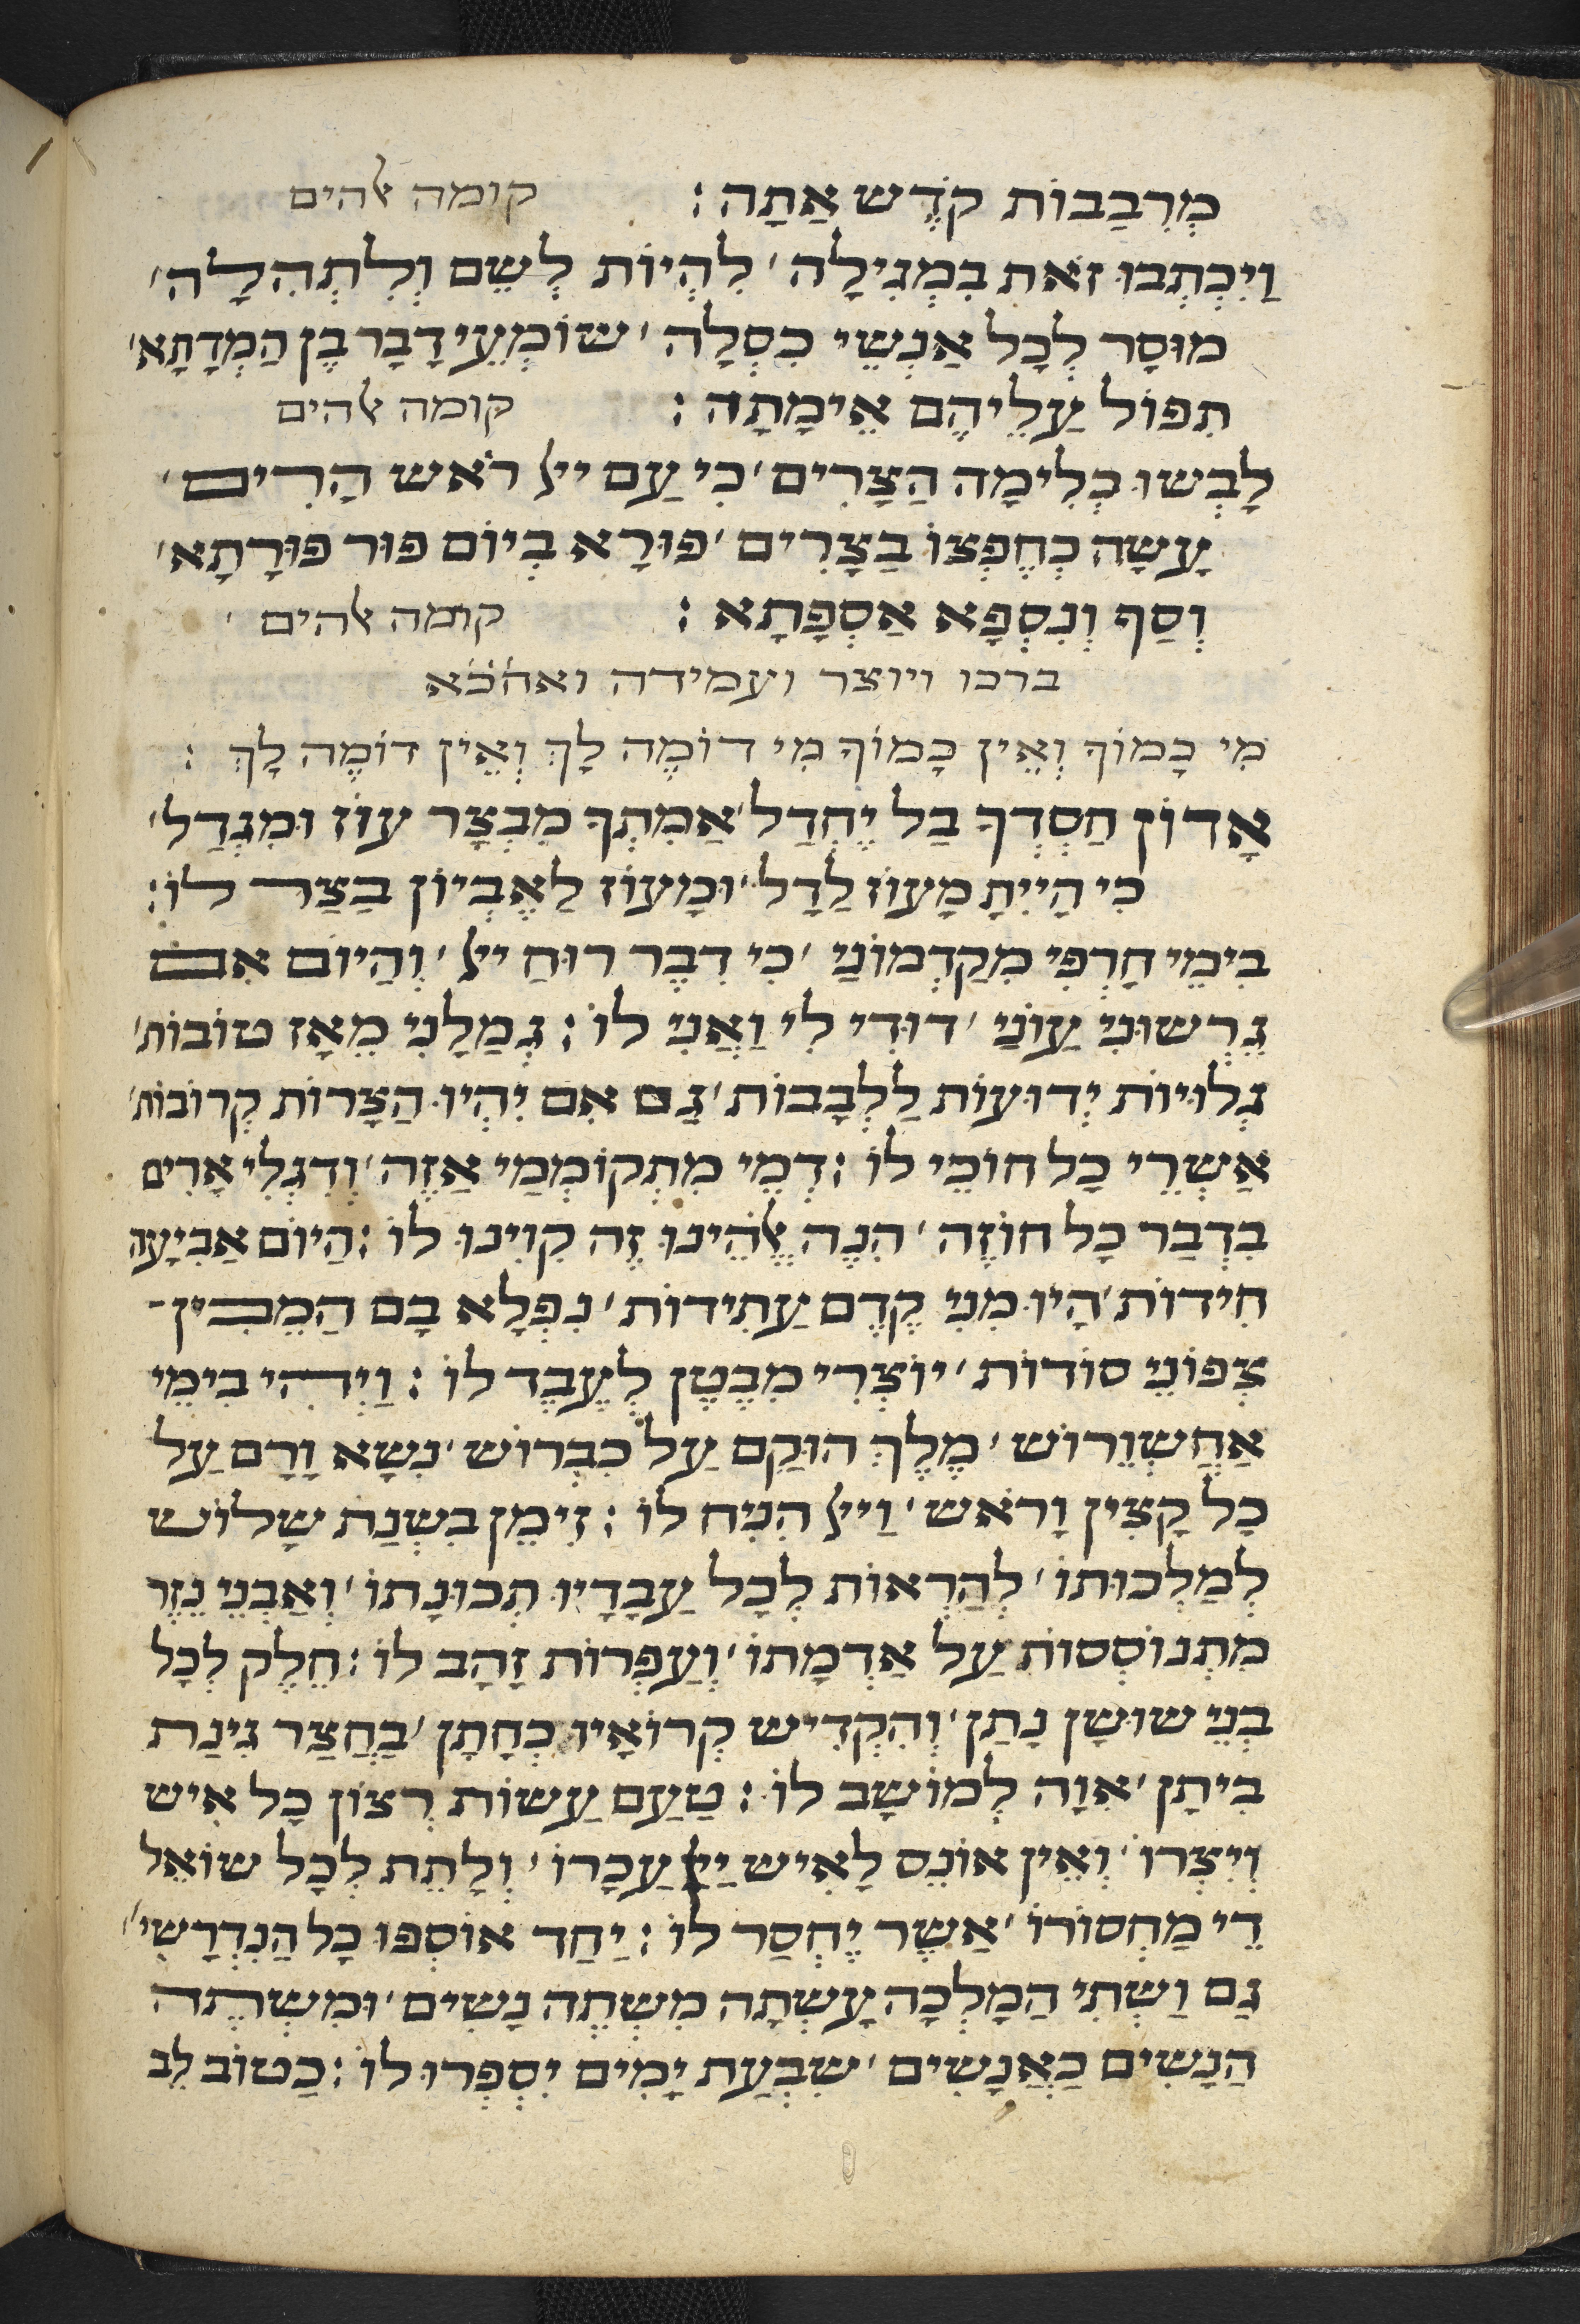 מְרִבַבוֹת קֹדֶש אַתָה : קומה אלהים
וַיִכְתְבוּ זֹאת בִמְגִילָה ׳ לִהְיוֹת לְשֵם וְלִתְהִלָה ׳
מוּסָר לְכָל אַנְשֵי כִסְלָה ׳ שוֹמְעֵי דְבָר בֶן הַמְדָתָא ׳
תִפוֹל עֲלֵיהֶם אֵימָתָה : קומה אלהים
לָבְשוּ כְלִימָה הַצָרִים ׳ כִי עַם ייל רֹאש הָרִים ׳
עָשָה כְחֶפְצוֹ בַצָרִים ׳ פוּרָא בְיוֹם פוּר פוּרָתָא ׳
וְסַף וְנִסְפָא אַסְפָתָא : קומה אלהים
ברכו ויוצר ועמידה ואח׳׳כ׳׳א
מִי כָמוֹךָ וְאֵין כָמוֹךָ מִי דוֹמֶה לָךְ וְאֵין דוֹמֶה לָךְ :
אָדוֹן חַסְדְךָ בַל יֶחְדַל ׳ אֲמִתְךָ מִבְצָר עוֹז וּמִגְדַל ׳
כִי הָיִיתָ מָעוֹז לַדָל ׳ וּמָעוֹז לָאֶבְיוֹן בַצַר לוֹ :
בִימֵי חָרְפִי מִקַדְמוֹנַי ׳ כִי דִבֶר רוּחַ ייל ׳ וְהַיוֹם אִם
גֵרְשוּנִי עֲוֹנַי ׳ דוֹדִי לִי וַאֲנִי לוֹ : גְמָלַנִי מֵאָז טוֹבוֹת ׳
גְלוּיוֹת יְדוּעוֹת לַלְבָבוֹת ׳ גַם אִם יִהְיוּ הַצָרוֹת קְרוֹבוֹת ׳
אַשְרֵי כָל חוֹכֵי לוֹ : דְמֵי מִתְקוֹמְמַי אַזֶה ׳ וְדִגְלִי אָרִים
בִדְבַר כָל חוֹזֶה ׳ הִנֵה אֱלֹהֵינוּ זֶה קִוִינוּ לוֹ : הַיוֹם אַבִיעָה
חִידוֹת ׳ הָיוּ מִנִי קֶדֶם עֲתִידוֹת ׳ נִפְלָא בָם הַמֵבִין
צְפוּנֵי סוֹדוֹת ׳ יוֹצְרִי מִבֶטֶן לְעֶבֶד לוֹ : וַיְהִי בִימֵי
אֲחַשְוֵרוֹש ׳ מֶלֶךְ הוּקַם עַל כִבְרוֹש ׳ נִשָא וָרָם עַל
כָל קָצִין וָרֹאש ׳ וַייל הֵנִיחַ לוֹ : זִימֵן בִשְנַת שָלוֹש
לְמַלְכוּתוֹ ׳ לְהַרְאוֹת לְכָל עֲבָדָיו תְכוּנָתוֹ ׳ וְאַבְנֵי נֵזֶר
מִתְנוֹסְסוֹת עַל אַדְמָתוֹ ׳ וְעַפְרוֹת זָהָב לוֹ : חֵלֶק לְכָל
בְנֵי שוּשָן נָתַן ׳ וְהִקְדִיש קְרוּאָיו כְחָתָן ׳ בַחֲצַר גִינַת
בִיתָן ׳ אִוָה לְמוֹשָב לוֹ : טַעַם עֲשוֹת רְצוֹן כָל אִיש
וְיִצְרוֹ ׳ וְאֵין אוֹנֵס לָאִיש ייל עֲכָרוֹ ׳ וְלָתֵת לְכָל שוֹאֵל
דֵי מַחְסוֹרוֹ ׳ אֲשֶר יֶחְסַר לוֹ : יַחַד אוֹסְפוּ כָל הַנִדְרָשִי׳ ׳
גַם וַשְתִי הַמַלְכָה עָשְתָה מִשְתֵה נָשִים ׳ וּמִשְתֵה
הַנָשִים כַאֲנָשִים ׳ שִבְעַת יָמִים יִסְפְרוּ לוֹ : כַטוֹב לֵב